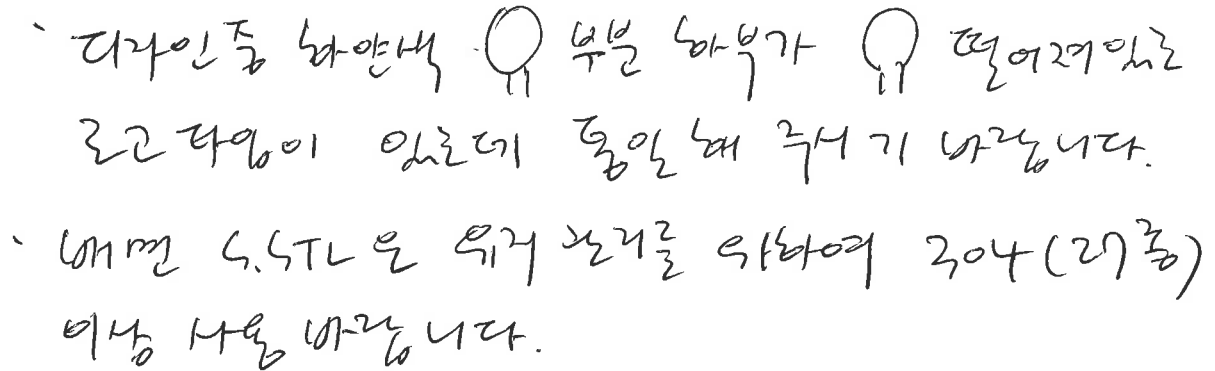 디자인중 하얀색 부분 하부가 떨어져있는
로고타입이 있는데 통일해 주시기 바랍니다.
배면 S.STL은 유지관리를 위하여 304(27종)
이상 사용 바랍니다.